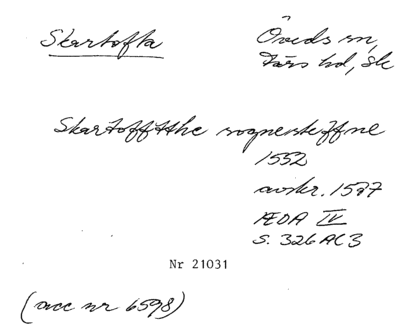 Skartofta
Öveds sn,
Färs hd, Sk
Skartoffthe sognersteffne
1552
avskr. 1587
ÆDA IV
S. 326 AC3
Nr 21031
(acc nr 6598)